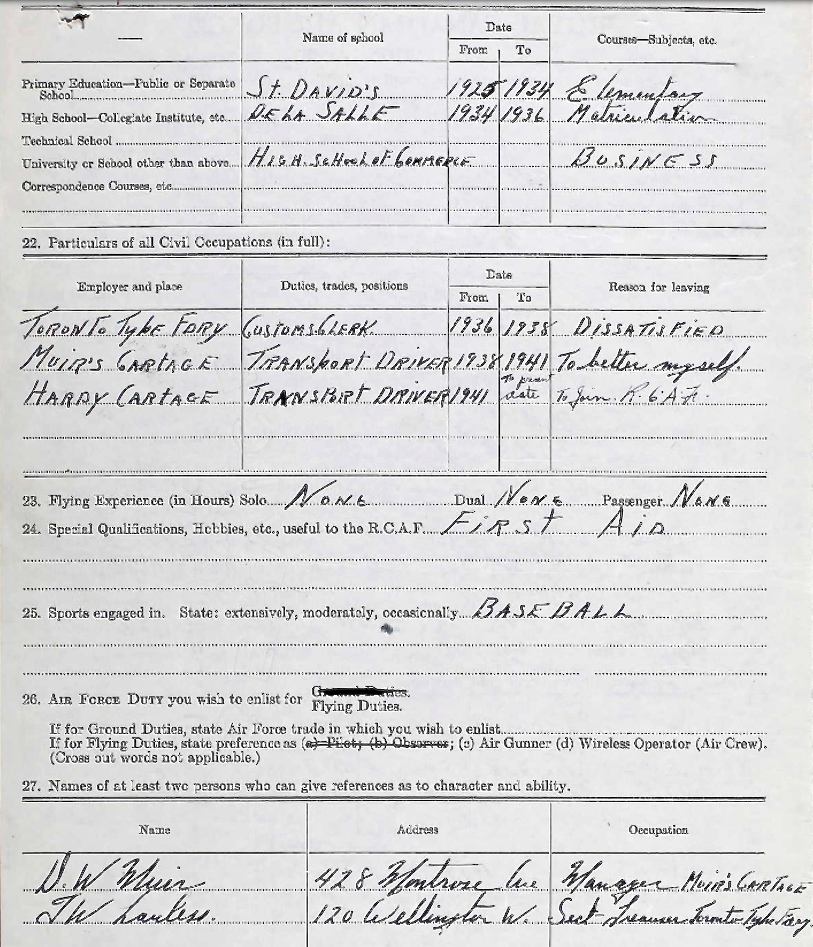 Date
— Name of school From To Courses—Subjects, etc.
Primary Education—Public or Separate
School St. DAVID'S 1925 1934 Elementary
High School—Collegiate Institute, etc. DE LA SALLE 1934 1936 Matriculation
Technical School
University or School other than above HIGH SCHOOL OF COMMERCE BUSINESS
Correspondence Courses, etc.
22. Particulars of all Civil Occupations (in full):
Date
Employer and place Duties, trades, positions From To Reason for leaving
TORONTO Type FDRY CUSTOMS CLERK 1936 1938 DISSATISFIED
MUIR'S CARTAGE TRANSPORT DRIVER 1938 1941 To better myself.
HARDY CARTAGE TRANSPORT DRIVER 1941 To present date To Join R.C.A.F.
23. Flying Experience (in Hours) Solo NONE Dual NONE Passenger NONE
24. Special Qualifications, Hobbies, etc., useful to the R.C.A.F. FIRST AID
25. Sports engaged in. State: extensively, moderately, occasionally BASEBALL
26. AIR FORCE DUTY you wish to enlist for Ground Duties.
Flying Duties.
If for Ground Duties, state Air Force trade in which you wish to enlist
If for Flying Duties, state preference as (a) Pilot; (b) Observer; (c) Air Gunner (d) Wireless Operator (Air Crew).
(Cross out words not applicable.)
27. Names of at least two persons who can give references as to character and ability.
Name Address Occupation
D. W Muir 428 Montrose Ave Manager MUIR'S CARTAGE
J W Lawless. 120 Wellington W. Sect Treasuer Toronto Type Fdry.